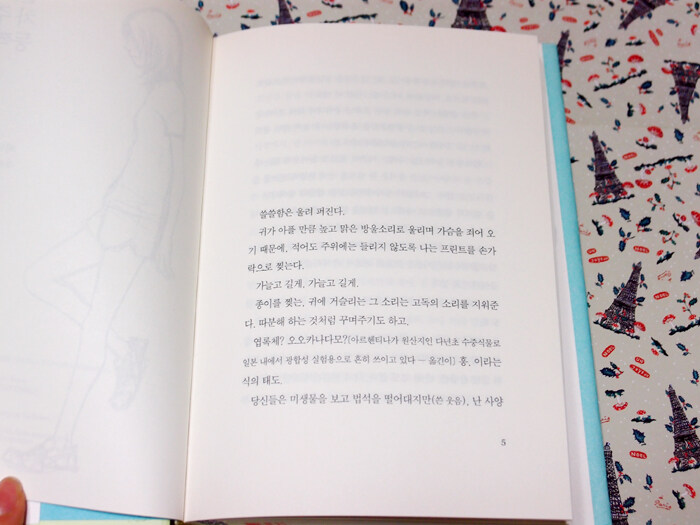 쓸쓸함은 울려 퍼진다.
귀가 아플 만큼 높고 맑은 방울소리로 울리며 가슴을 죄어 오
기 때문에, 적어도 주위에는 들리지 않도록 나는 프린트를 손가
락으로 찢는다.
가늘고 길게, 가늘고 길게.
종이를 찢는, 귀에 거슬리는 그 소리는 고독의 소리를 지워준
다. 따분해 하는 것처럼 꾸며주기도 하고.
엽록체? 오오카나다모?(아르헨티나가 원산지인 다년초 수중식물로
일본 내에서 광합성 실험용으로 흔히 쓰이고 있다 — 옮긴이) 흥, 이라는
식의 태도.
당신들은 미생물을 보고 법석을 떨어대지만(쓴 웃음), 난 사양
5